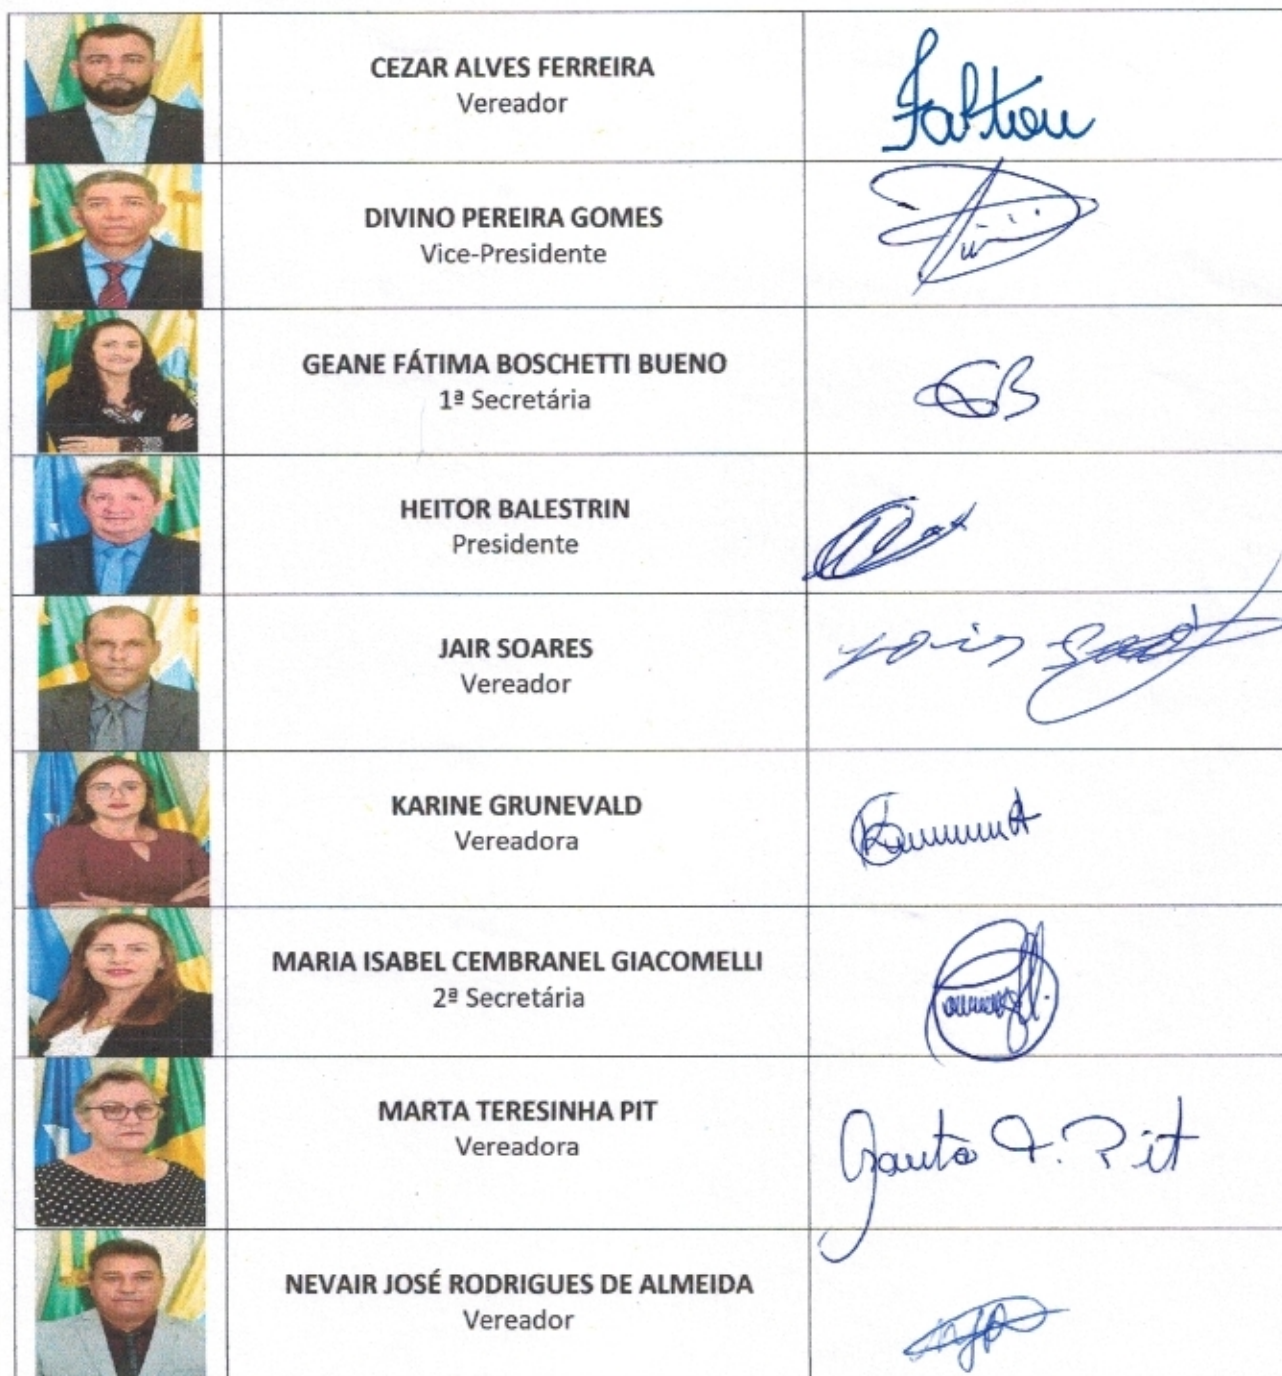 CEZAR ALVES FERREIRA
Vereador
Faltou
DIVINO PEREIRA GOMES
Vice-Presidente
GEANE FÁTIMA BOSCHETTI BUENO
1ª Secretária
GB
HEITOR BALESTRIN
Presidente
JAIR SOARES
Vereador
KARINE GRUNEVALD
Vereadora
MARIA ISABEL CEMBRANEL GIACOMELLI
2ª Secretária
MARTA TERESINHA PIT
Vereadora
Marta T. Pit
NEVAIR JOSÉ RODRIGUES DE ALMEIDA
Vereador